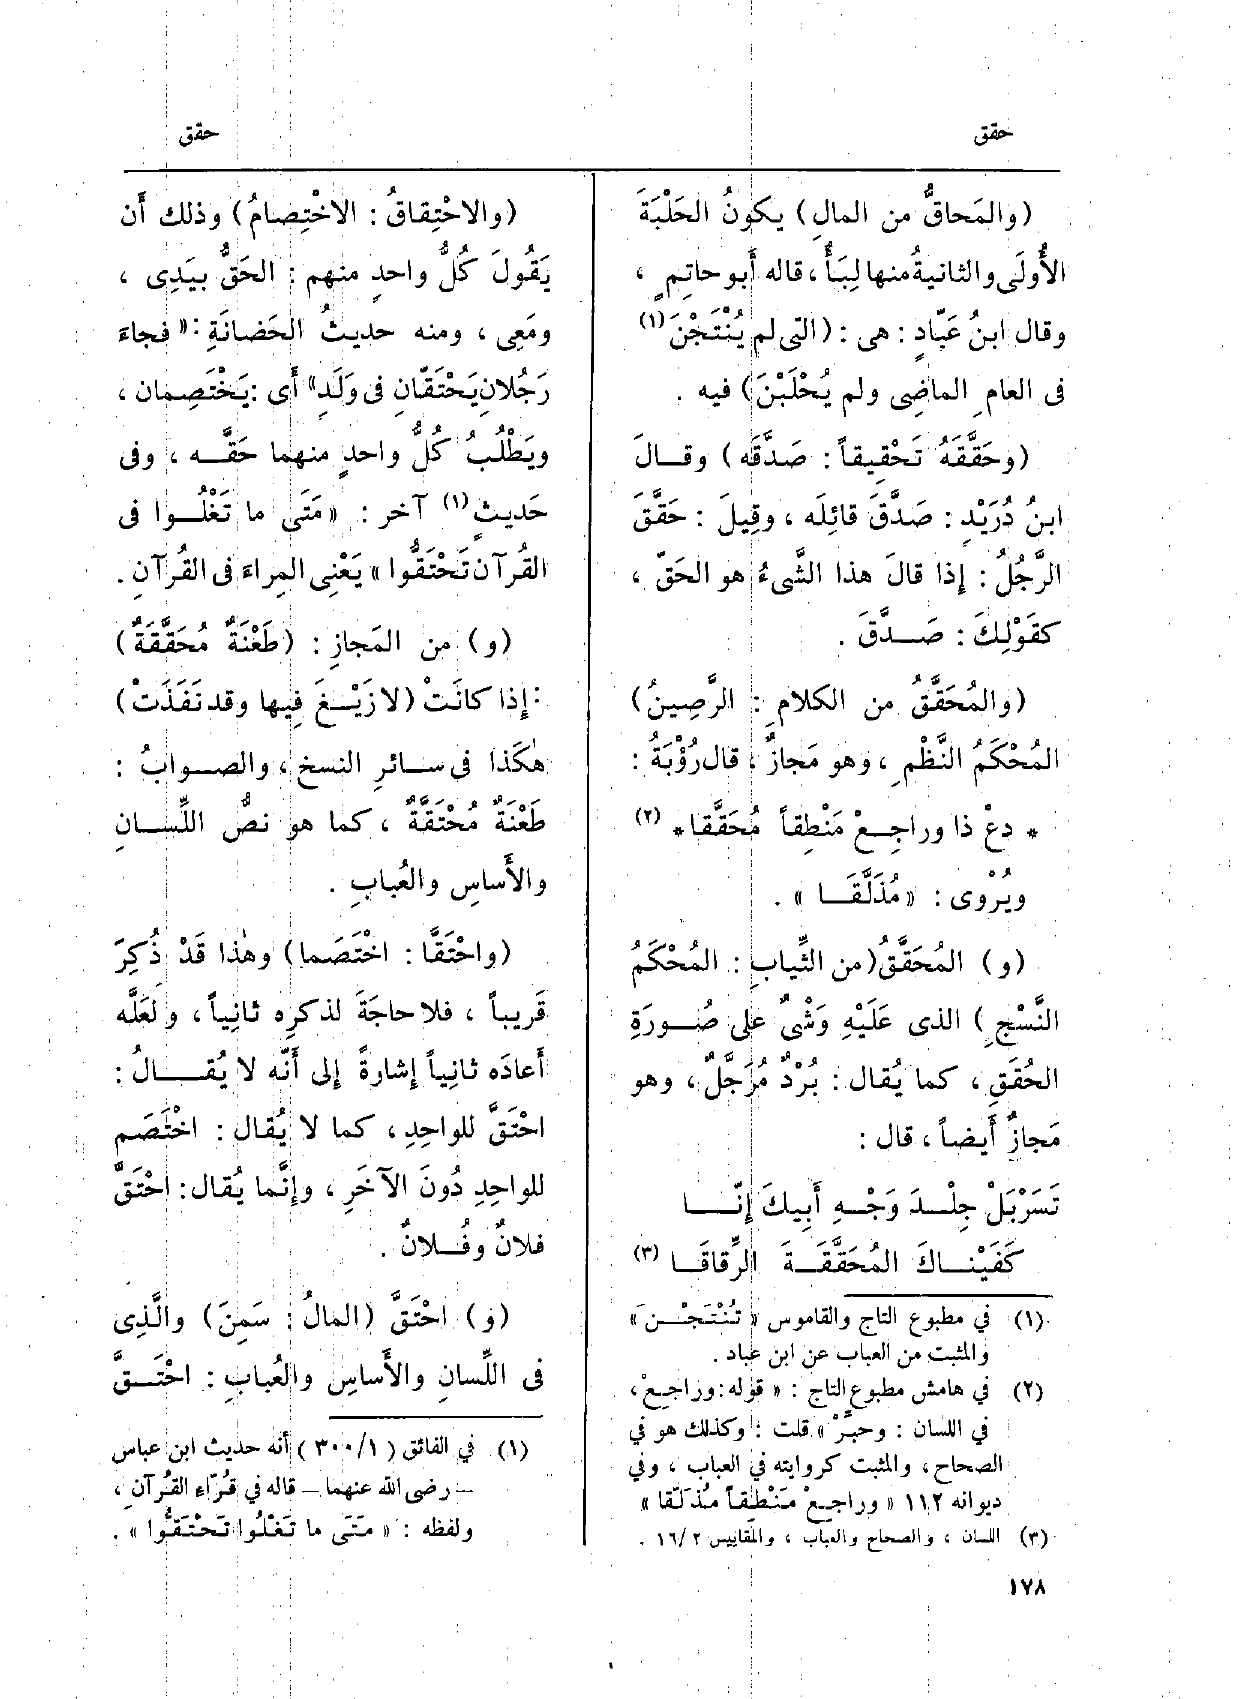 حقق
حقق
(والمَحاقُّ من المالِ) يكونُ الحَلْبَةَ
الأُولَى والثانيةُ منها لِبَأً ، قاله أَبو حاتِمٍ ،
وقال ابنُ عَبّادٍ : هى : (التى لم يُنْتَجْنَ(١)
فى العامِ الماضِى ولم يُحْلَبْنَ) فيه .
(وحَقَّقَهُ تَحْقِيقاً : صَدَّقَه) وقـالَ
ابنُ دُرَيْدٍ : صَدَّقَ قائِلَه ، وقِيلَ : حَقَّقَ
الرَّجُلُ : إِذا قالَ هذا الشَّىءُ هو الحَقّ ،
كقَوْلِكَ : صَـدَّقَ .
(والمُحَقَّقُ من الكلامِ : الرَّصِينُ)
المُحْكَمُ النَّظْمِ ، وهو مَجازٌ ، قال رُؤْبَةُ :
* دعْ ذا وراجِـعْ مَنْطِقاً مُحَقَّقا * (٢)
ويُرْوى : «مُذَلَّقَـا » .
(و) المُحَقَّقُ (من الثِّيابِ : المُحْكَمُ
النَّسْجِ ) الذى عَلَيْهِ وَشْىٌ على صُـورَةِ
الحُقَقِ ، كما يُقال : بُرْدٌ مُرَجَّلٌ ، وهو
مَجازٌ أَيضاً ، قال :
تَسَرْبَلْ جِلْـدَ وَجْـهِ أَبِيكَ إِنّـا
كَفَيْنـاكَ المُحَقَّقَـةَ الرِّقاقَـا (٣)
(١) في مطبوع التاج والقاموس « تُنْتَجْـنَ »
والمثبت من العباب عن ابن عباد .
(٢) في هامش مطبوع التاج : « قوله : وراجِعْ ،
في اللسان : وحبِّرْ » قلت : وكذلك هو في
الصحاح ، والمثبت كروايته في العباب ، وفي
ديوانه ١١٢ « وراجِعْ مَنْطِقاً مُذَلَّقا »
(٣) اللسان ، والصحاح والعباب ، والمقاييس ١٦/٢ .
(والاحْتِقاقُ : الاخْتِصامُ) وذلك أَن
يَقُولَ كُلُّ واحدٍ منهم : الحَقُّ بيَدِى ،
ومَعِى ، ومنه حديثُ الحَضانَةِ : « فجاءَ
رَجُلانِ يَحْتَقّانِ فى وَلَدٍ » أَى : يَخْتَصِمان ،
ويَطْلُبُ كُلُّ واحدٍ منهما حَقَّـه ، وفى
حَديثٍ(١) آخر : «مَتَى ما تَغْلُـوا فى
القُرآن تَحْتَقُّوا » يَعْنِى المِراءَ فى القُرآنِ .
(و) من المَجازِ : (طَعْنَةٌ مُحَقَّقَةٌ)
: إِذا كانَتْ (لا زَيْـغَ فِيها وقد نَفَذَتْ)
هٰكَذا فى سـائرِ النسخِ ، والصـوابُ :
طَعْنَةٌ مُحْتَقَّةٌ ، كما هو نصُّ اللِّسـانِ
والأَساسِ والعُبابِ .
(واحْتَقَّا : اخْتَصَما) وهٰذا قَدْ ذُكِرَ
قَرِيباً ، فلا حاجَةَ لذكرِه ثانِياً ، ولَعَلَّه
أَعادَه ثانِياً إِشارةً إِلى أَنّه لا يُقـالُ :
احْتَقَّ للواحِدِ ، كما لا يُقال : اخْتَصَم
للواحِدِ دُونَ الآخَرِ ، وإِنَّما يُقال : احْتَقَّ
فلانٌ وفُـلانٌ .
(و) احْتَقَّ (المالُ : سَمِنَ) والَّذِى
فى اللِّسانِ والأَساسِ والعُبابِ : احْتَـقَّ
(١) في الفائق ( ٣٠٠/١ ) أنه حديث ابن عباس
– رضى الله عنهما – قاله في قُرّاء القُرآنِ ،
ولفظه : « مَتَى ما تَغْلُوا تَحْتَقُّوا » .
١٧٨